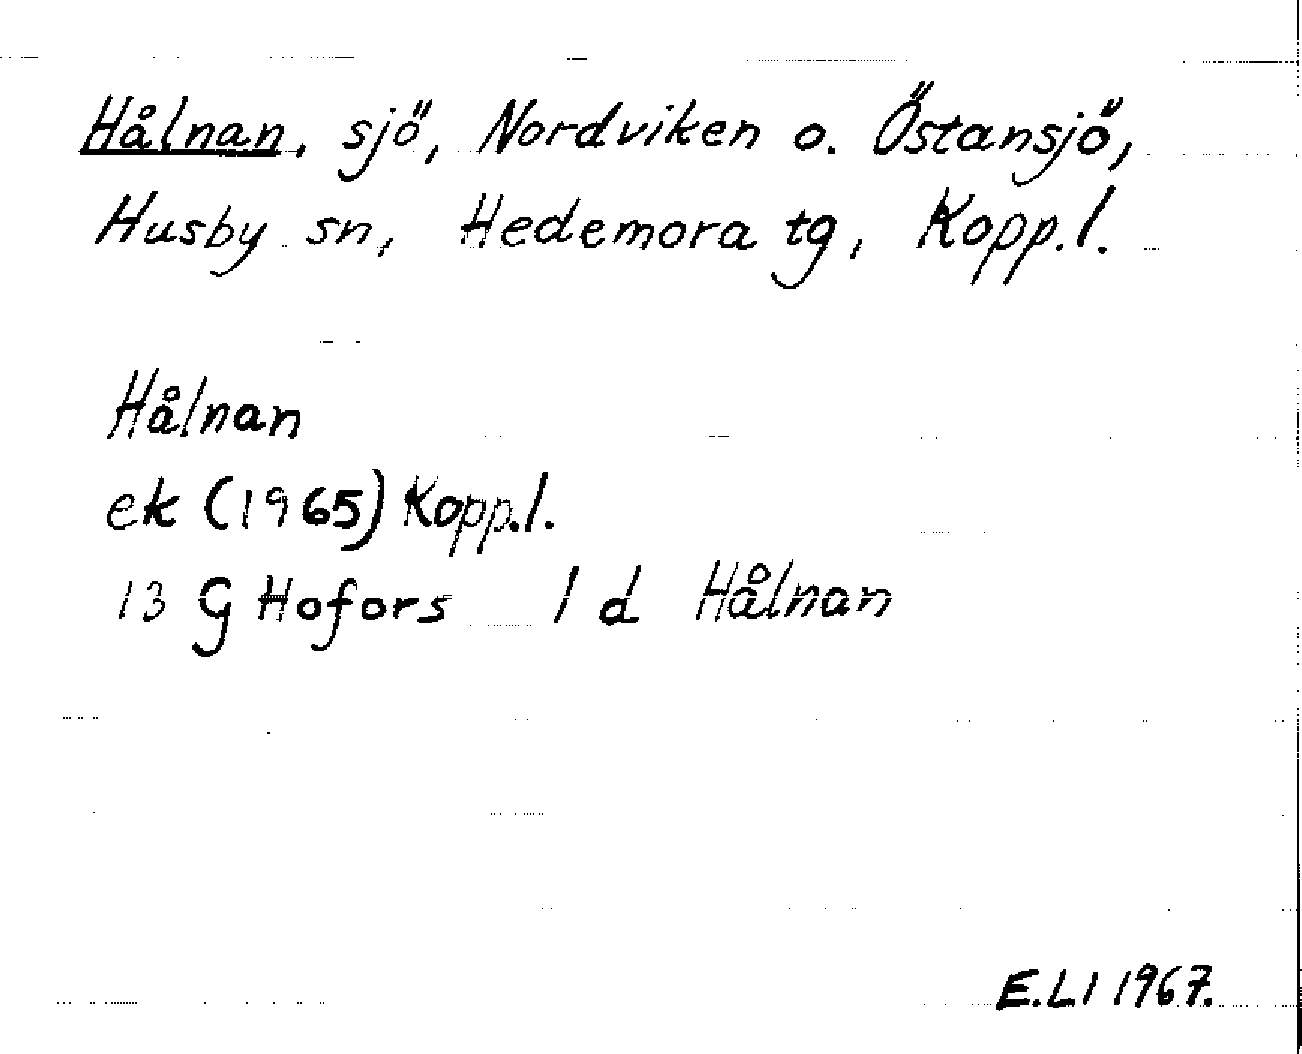 Hålnan, sjö, Nordviken o. Östansjö,
Husby sn, Hedemora tg, Kopp.l.
Hålnan
ek (1965) Kopp.l.
13 G Hofors 1 d Hålnan
E.LI 1967.